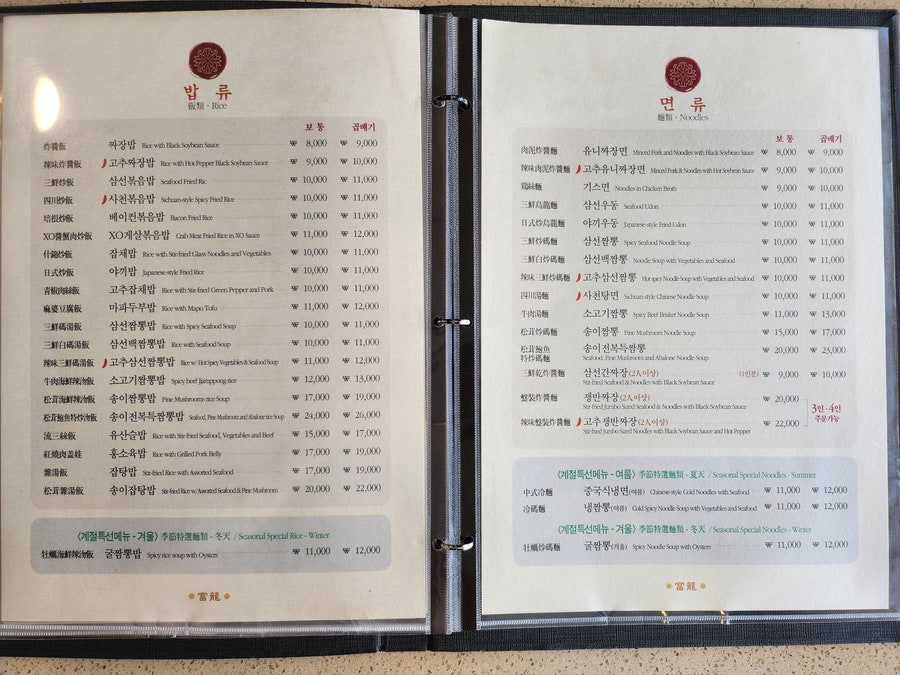 밥 류
飯類 · Rice
보 통 곱배기
炸醬飯 짜장밥 Rice with Black Soybean Sauce ₩ 8,000 ₩ 9,000
辣味炸醬飯 고추짜장밥 Rice with Hot Pepper Black Soybean Sauce ₩ 9,000 ₩ 10,000
三鮮炒飯 삼선볶음밥 Seafood Fried Ric ₩ 10,000 ₩ 11,000
四川炒飯 사천볶음밥 Sichuan-style Spicy Fried Rice ₩ 10,000 ₩ 11,000
培根炒飯 베이컨볶음밥 Bacon Fried Rice ₩ 10,000 ₩ 11,000
XO醬蟹肉炒飯 XO게살볶음밥 Crab Meat Fried Rice in XO Sauce ₩ 11,000 ₩ 12,000
什錦炒飯 잡채밥 Rice with Stir-fried Glass Noodles and Vegetables ₩ 10,000 ₩ 11,000
日式炒飯 야끼밥 Japanese-style Fried Rice ₩ 10,000 ₩ 11,000
青椒肉絲飯 고추잡채밥 Rice with Stir-fried Green Pepper and Pork ₩ 10,000 ₩ 11,000
麻婆豆腐飯 마파두부밥 Rice with Mapo Tofu ₩ 11,000 ₩ 12,000
三鮮碼湯飯 삼선짬뽕밥 Rice with Spicy Seafood Soup ₩ 10,000 ₩ 11,000
三鮮白碼湯飯 삼선백짬뽕밥 Rice with Seafood Soup ₩ 10,000 ₩ 11,000
辣味三鮮碼湯飯 고추삼선짬뽕밥 Rice w/ Hot Spicy Vegetables & Seafood Soup ₩ 11,000 ₩ 12,000
牛肉海鮮辣湯飯 소고기짬뽕밥 Spicy beef Jjamppong rice ₩ 12,000 ₩ 13,000
松茸海鮮辣湯飯 송이짬뽕밥 Pine Mushrooms rice Soup ₩ 17,000 ₩ 19,000
松茸鮑魚特炒湯飯 송이전복특짬뽕밥 Seafood, Pine Mushroom and Abalone rice Soup ₩ 24,000 ₩ 26,000
流三絲飯 유산슬밥 Rice with Stir-fried Seafood, Vegetables and Beef ₩ 15,000 ₩ 17,000
紅燒肉盖娃 홍소육밥 Rice with Grilled Pork Belly ₩ 17,000 ₩ 19,000
雜湯飯 잡탕밥 Stir-fried Rice with Assorted Seafood ₩ 17,000 ₩ 19,000
松茸雜湯飯 송이잡탕밥 Stir-fried Rice w/Assorted Seafood & Pine Mushroom ₩ 20,000 ₩ 22,000
〈계절특선메뉴 - 겨울〉 季節特選麵類 - 冬天 / Seasonal Special Rice - Winter
牡蠣海鮮辣湯飯 굴짬뽕밥 Spicy rice soup with Oysters ₩ 11,000 ₩ 12,000
富龍
면 류
麵類 · Noodles
보 통 곱배기
肉泥炸醬麵 유니짜장면 Minced Pork and Noodles with Black Soybean Sauce ₩ 8,000 ₩ 9,000
辣味肉泥炸醬麵 고추유니짜장면 Minced Pork & Noodles with Hot Soybean Sauce ₩ 9,000 ₩ 10,000
鷄絲麵 기스면 Noodles in Chicken Broth ₩ 9,000 ₩ 10,000
三鮮烏龍麵 삼선우동 Seafood Udon ₩ 10,000 ₩ 11,000
日式炒烏龍麵 야끼우동 Japanese-style Fried Udon ₩ 10,000 ₩ 11,000
三鮮炒碼麵 삼선짬뽕 Spicy Seafood Noodle Soup ₩ 10,000 ₩ 11,000
三鮮白炒碼麵 삼선백짬뽕 Noodle Soup with Vegetables and Seafood ₩ 10,000 ₩ 11,000
辣味三鮮炒碼麵 고추삼선짬뽕 Hot spicy Noodle Soup with Vegetables and Seafood ₩ 10,000 ₩ 11,000
四川湯麵 사천탕면 Sichuan-style Chinese Noodle Soup ₩ 10,000 ₩ 11,000
牛肉湯麵 소고기짬뽕 Spicy Beef Brisket Noodle Soup ₩ 11,000 ₩ 13,000
松茸炒碼麵 송이짬뽕 Pine Mushroom Noodle Soup ₩ 15,000 ₩ 17,000
松茸鮑魚 송이전복특짬뽕 ₩ 20,000 ₩ 23,000
特炒碼麵 Seafood, Pine Mushroom and Abalone Noodle Soup
三鮮乾炸醬麵 삼선간짜장 (2人이상) (1인분) ₩ 9,000 ₩ 10,000
Stir-fried Seafood & Noodles with Black Soybean Sauce
盤裝炸醬麵 쟁반짜장 (2人이상) ₩ 20,000
Stir-fried Jumbo Sized Seafood & Noodles with Black Soybean Sauce
3인·4인
주문가능
辣味盤裝炸醬麵 고추쟁반짜장 (2人이상) ₩ 22,000
Stir-fried Jumbo Sized Noodles with Black Soybean Sauce and Hot Pepper
〈계절특선메뉴 - 여름〉 季節特選麵類 - 夏天 / Seasonal Special Noodles - Summer
中式冷麵 중국식냉면(여름) Chinese-style Cold Noodles with Seafood ₩ 11,000 ₩ 12,000
冷碼麵 냉짬뽕(여름) Cold Spicy Noodle Soup with Vegetables and Seafood ₩ 11,000 ₩ 12,000
〈계절특선메뉴 - 겨울〉 季節特選麵類 - 冬天 / Seasonal Special Noodles - Winter
牡蠣炒碼麵 굴짬뽕(겨울) Spicy Noodle Soup with Oysters ₩ 11,000 ₩ 12,000
富龍